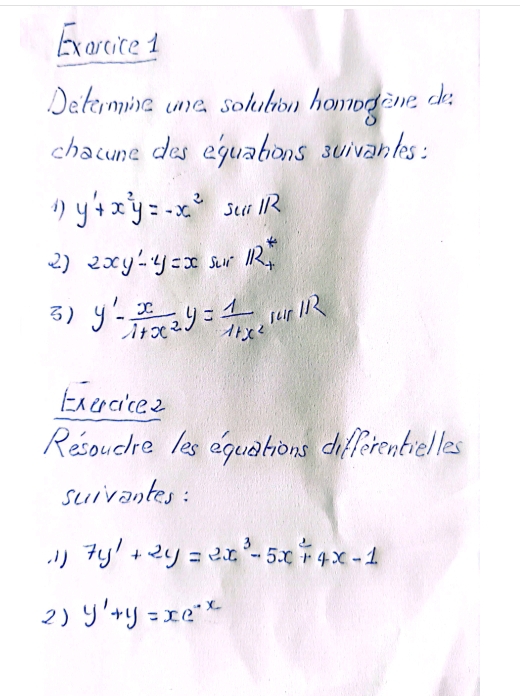 Exercice 1
Détermine une solution homogène de
chacune des équations suivantes :
1) y' + x²y = -x² sur ℝ
2) 2xy' - y = x sur ℝ₊*
3) y' - x/(1+x²) y = 1/(1+x²) sur ℝ
Exercice 2
Résoudre les équations différentielles
suivantes :
1) 7y' + 2y = 2x³ - 5x² + 4x - 1
2) y' + y = xe⁻ˣ